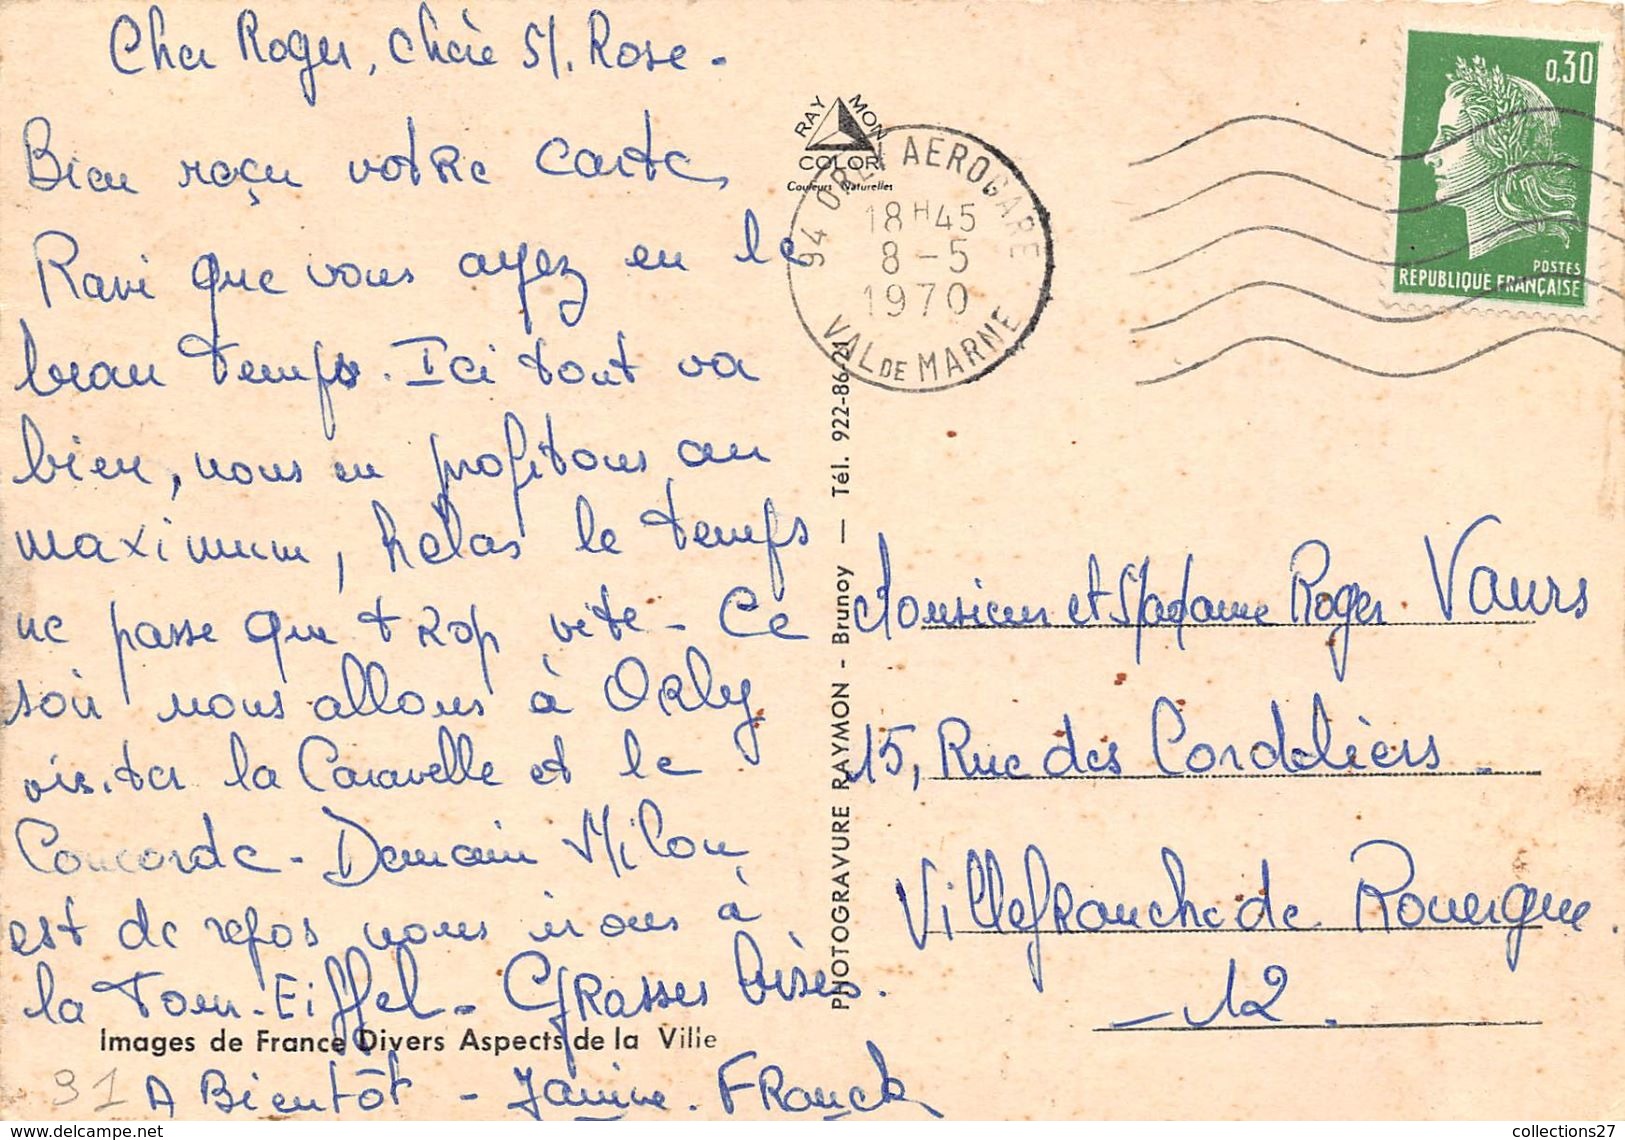 Cher Roger, chère M. Rose -
Bien reçu votre carte,
Ravi que vous ayez eu le
beau temps. Ici tout va
bien, nous en profitons au
maximum, hélas le temps
ne passe que trop vite - Ce
soir nous allons à ORly
visiter la Caravelle et le
Concorde - Demain Milou
est de repos nous irons à
la Tour-Eiffel - GRosses bises.
A Bientôt - Janine. FRanck
Images de France Divers Aspects de la Ville
91
RAYMON
COLOR
Couleurs Naturelles
94 ORLY AEROGARE
18H45
8-5
1970
VAL DE MARNE
0,30
POSTES
REPUBLIQUE FRANÇAISE
PHOTOGRAVURE RAYMON - Brunoy — Tél. 922-86-21
Monsieur et Madame Roger Vaurs
15, Rue des Cordeliers -
VillefRanche de Rouergue.
- 12 .
collections27